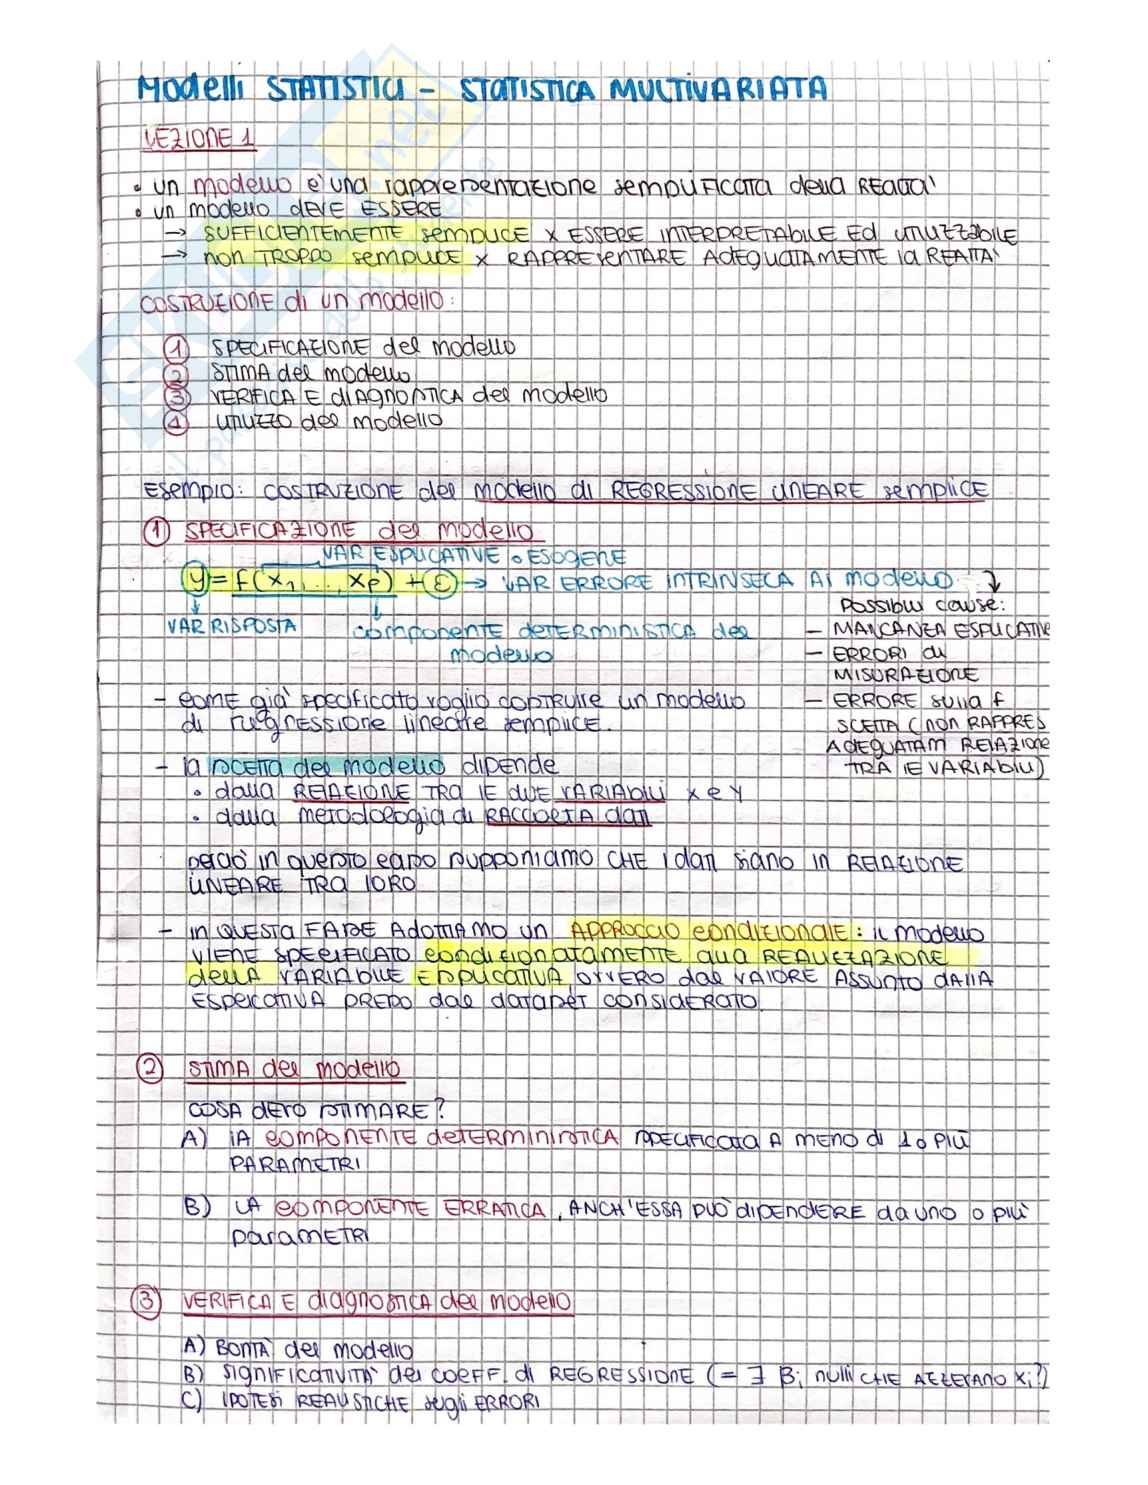 Modelli STATISTICI - STATISTICA MULTIVARIATA
LEZIONE 1
• un modello è una rappresentazione semplificata della REALTA'
• un modello DEVE ESSERE
→ SUFFICIENTEMENTE semplice x ESSERE INTERPRETABILE Ed UTILIZZABILE
→ non TROPPO semplice x RAPPRESENTARE ADEGUATAMENTE la REALTA'
COSTRUZIONE di un modello:
1 SPECIFICAZIONE del modello
2 STIMA del modello
3 VERIFICA E dIAGNOSTICA del modello
4 UTILIZZO del modello
Esempio: COSTRUZIONE del modello di REGRESSIONE LINEARE semplice
1 SPECIFICAZIONE del modello
VAR ESPLICATIVE o ESOGENE
y = f(x1, ..., xp) + ε → VAR ERRORE INTRINSECA AL modello
VAR RISPOSTA
componente deterministica del
modello
Possibili cause:
- MANCANZA ESPLICATIVE
- ERRORI di
MISURAZIONE
- ERRORE sulla f
SCELTA (non RAPPRES
ADEGUATAM RELAZIONE
TRA lE VARIABILI)
- come già specificato voglio costruire un modello
di regressione lineare semplice.
- la scelta del modello dipende
• dalla RELAZIONE TRA lE duE VARIABILI x e y
• dalla metodologia di RACCOLTA dati
perciò in questo caso supponiamo CHE i dati siano in RELAZIONE
LINEARE TRA lORO
- in QUESTA FASE AdottiAMO un APPROCCIO condizionale: il modello
VIENE SPECIFICATO condizionatamente alla REALIZZAZIONE
dellA VARIABILE ESPLICATIVA, OVVERO dal VALORE ASSUNTO dAllA
ESPLICATIVA PRESO dal dataset CONSIDERATO.
2 STIMA del modello
COSA dEVO STIMARE?
A) lA componente deterministica specificata A meno di 1 o PIÙ
PARAMETRI
B) LA componente ERRATICA, ANCH'ESSA PUÒ dipendere da uno o più
parametri
3 VERIFICA E diagnostica del modello
A) BONTA' del modello
B) SIGNIFICATIVITA' dei COEFF. di REGRESSIONE (= ∃ βi nulli CHE AZZERANO xi?)
C) IPOTESI REALISTICHE sugli ERRORI